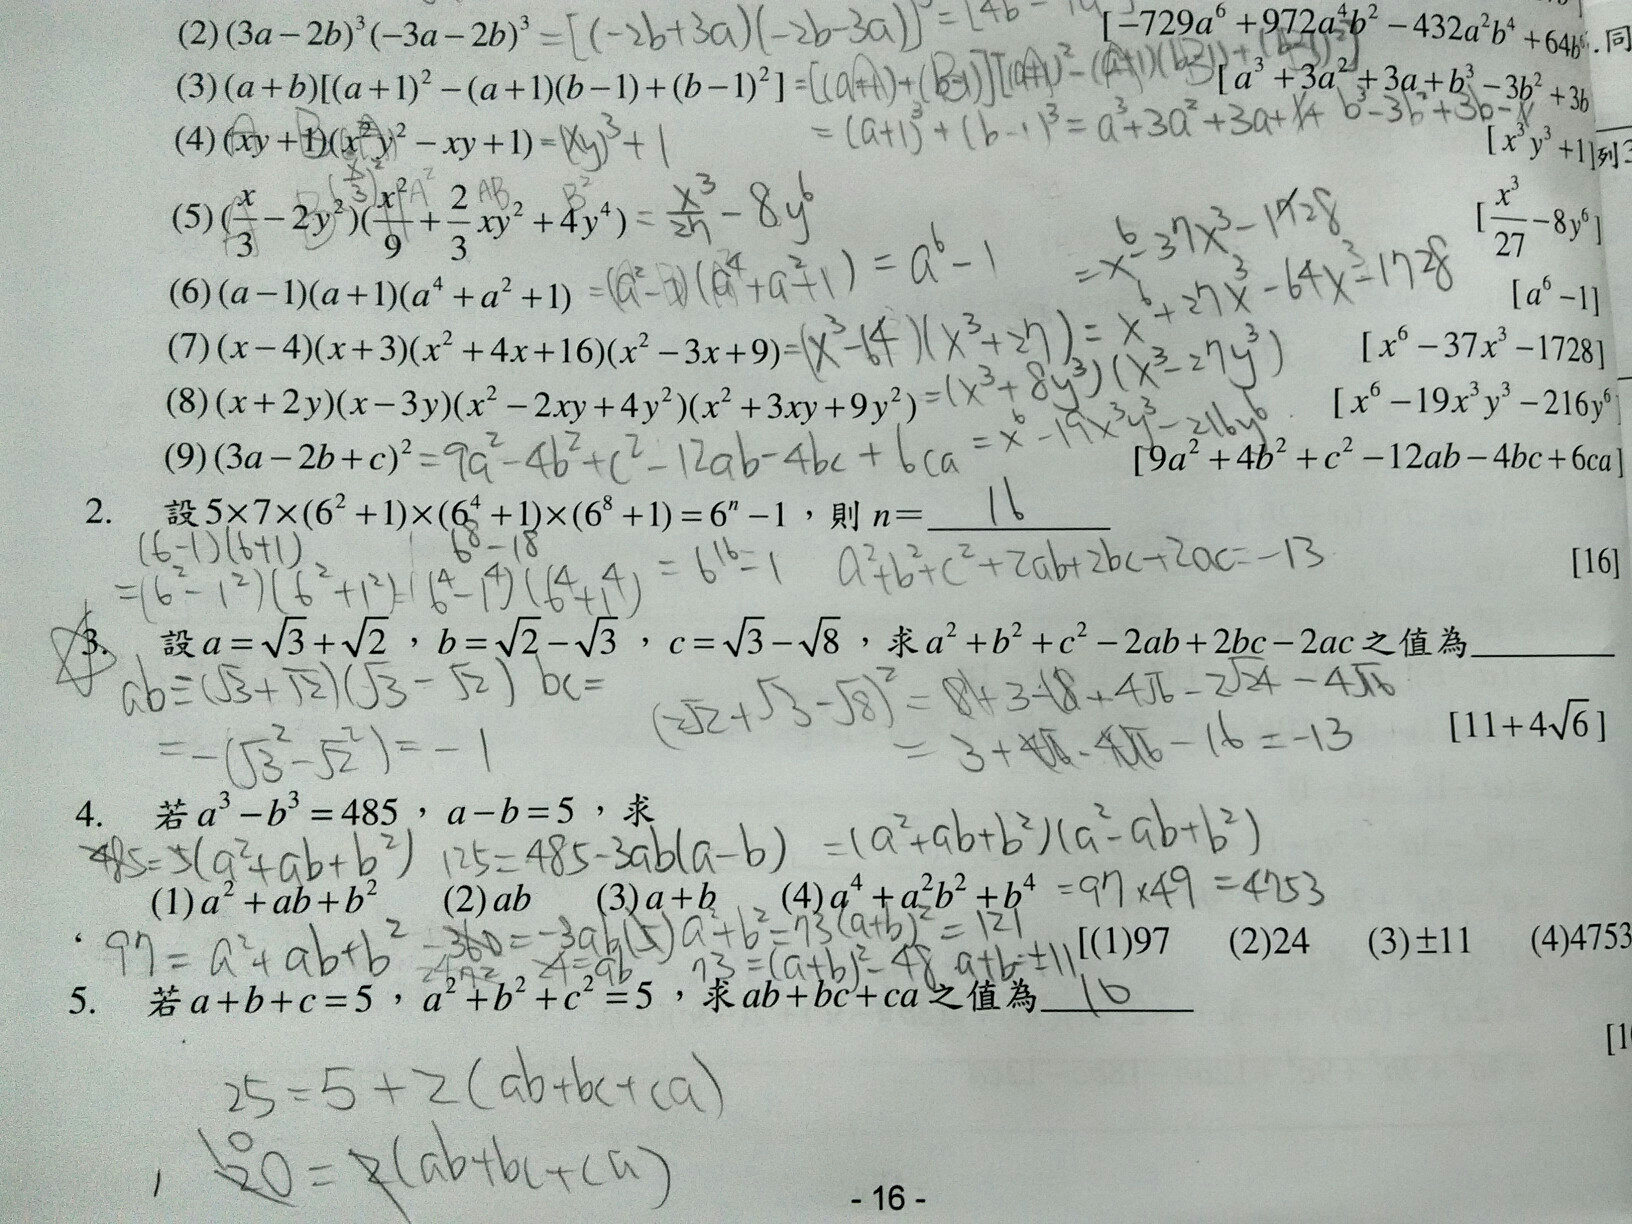 (2) (3a−2b)³(−3a−2b)³ =[(-2b+3a)(-2b-3a)]³ = [4b [−729a⁶+972a⁴b²−432a²b⁴+64b⁶]. 同
(3) (a+b)[(a+1)²−(a+1)(b−1)+(b−1)²] =[(a+1)+(b-1)][(a+1)²-(a+1)(b-1)+(b-1)²] [a³+3a²+3a+b³−3b²+3b
= (a+1)³+(b-1)³ = a³+3a²+3a+1+b³-3b²+3b-1
(4) (xy+1)(x²y²−xy+1) =(xy)³+1 [x³y³+1] 列
(x/3)² A² AB B²
(5) (x/3−2y²)(x²/9+2/3xy²+4y⁴) = x³/27 - 8y⁶ [x³/27−8y⁶]
= x⁶-37x³-1728
(6) (a−1)(a+1)(a⁴+a²+1) =(a²-1)(a⁴+a²+1) = a⁶-1 [a⁶−1]
= x⁶+27x³-64x³-1728
(7) (x−4)(x+3)(x²+4x+16)(x²−3x+9) =(x³-64)(x³+27) [x⁶−37x³−1728]
(8) (x+2y)(x−3y)(x²−2xy+4y²)(x²+3xy+9y²) =(x³+8y³)(x³-27y³) [x⁶−19x³y³−216y⁶]
= x⁶-19x³y³-216y⁶
(9) (3a−2b+c)² =9a²-4b²+c²-12ab-4bc+6ca [9a²+4b²+c²−12ab−4bc+6ca]
2. 設5×7×(6²+1)×(6⁴+1)×(6⁸+1)=6ⁿ−1，則n=16
(6-1)(6+1) 6⁸-1⁸
=(6²-1²)(6²+1²)=(6⁴-1⁴)(6⁴+1⁴) = 6¹⁶-1 a²+b²+c²+2ab+2bc+2ac=-13 [16]
3. 設a=√3+√2，b=√2−√3，c=√3−√8，求a²+b²+c²−2ab+2bc−2ac之值為
ab=(√3+√2)(√3-√2) bc=
(2√2+√3-√8)² = 8+3+8+4√6-2√24-4√16
=-(√3²-√2²)=-1 = 3+4√6-4√6-16=-13 [11+4√6]
4. 若a³−b³=485，a−b=5，求
485=5(a²+ab+b²) 125=485-3ab(a-b) =(a²+ab+b²)(a²-ab+b²)
(1) a²+ab+b² (2) ab (3) a+b (4) a⁴+a²b²+b⁴ =97×49=4753
97=a²+ab+b² -360=-3ab(5) a²+b²=73 (a+b)²=121 [(1)97 (2)24 (3)±11 (4)4753
24=ab 73=(a+b)²-48 a+b=±11
5. 若a+b+c=5，a²+b²+c²=5，求ab+bc+ca之值為10
[10
25=5+2(ab+bc+ca)
10
20=2(ab+bc+ca)
- 16 -